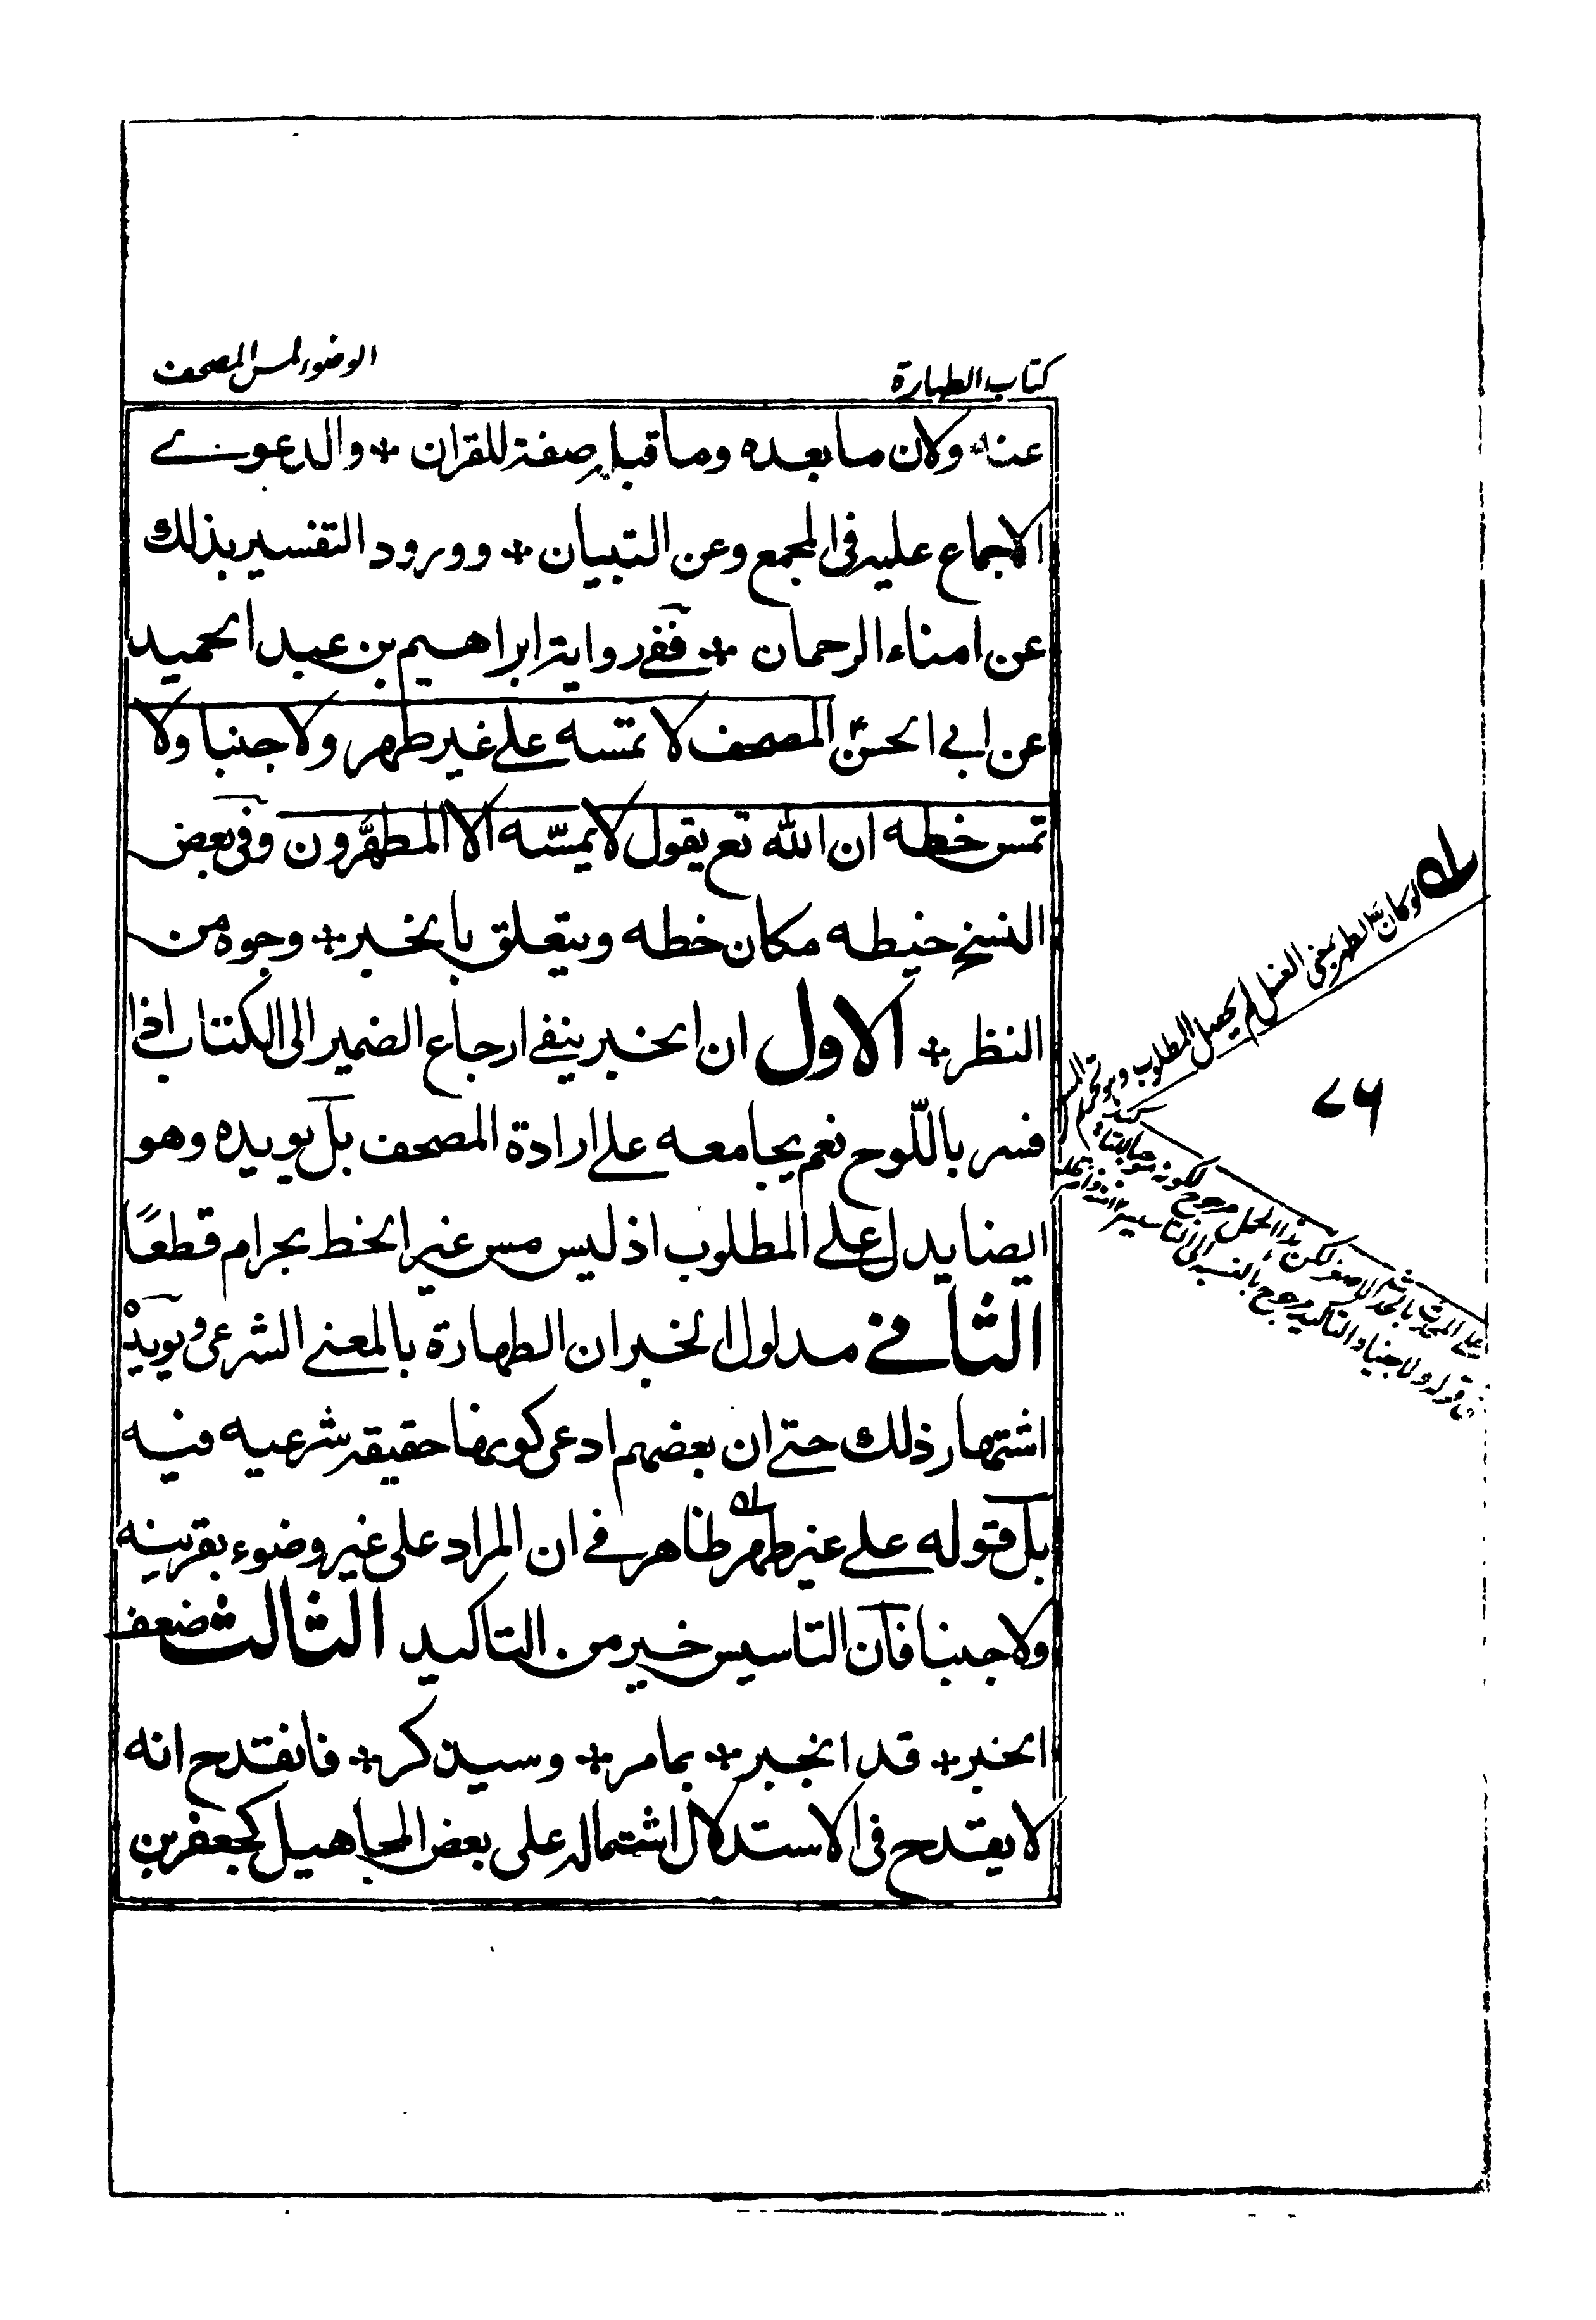 كتاب الطهارة
الوضوء لمس المصحف
عنه ولان ما بعده وما قبله صفة للقران + والدعوے
الاجماع عليه فى المجمع وعن التبيان + وورود التفسير بذلك
عن امناء الرحمان + ففے رواية ابراهيم بن عبد الحميد
عن ابے الحسنؑ المصحف لا تمسه علے غير طهر ولا جنبا ولا
تمس خطه ان الله تع يقول لا يمسّه الا المطهّرون وفى بعض
النسخ خيطه مكان خطه ويتعلق بالخبر + وجوه من
النظر + الاول ان الخبر ينفے ارجاع الضمير الى الكتاب اذا
فسر باللّوح نعم يجامعه علے ارادة المصحف بل يويده وهو
ايضا يدل علے المطلوب اذ ليس مس غير الخط بحرام قطعًا
الثانے مدلول الخبر ان الطهارة بالمعنے الشرعى ويويده
اشتهار ذلك حتے ان بعضهم ادعى كونها حقيقة شرعيه فيه
بل قوله علے غير طهر ظاهر فے ان المراد على غير وضوء بقرينه
ولا جنبا فان التاسيس خير من التاكيد الثالث ضعف
الخبر + قد انجبر + بما مر + وسيذكر + فانقدح انه
لا يقدح فى الاستدلال اشتماله على بعض المجاهيل كجعفر بن
لو كان الطهر بمعنى الغسل لم يحصل المطلوب وهو تحريم المس
على المحدث بالحدث الاصغر لكن هذا الحمل مرجوح لكونه
قوله ولا جنبا والتاكيد مرجوح بالنسبه الى التاسيس
۷۶